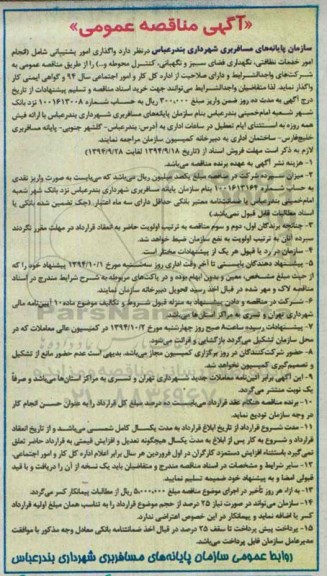 «آگهی مناقصه عمومی»
سازمان پایانه‌های مسافربری شهرداری بندرعباس درنظر دارد واگذاری امور پشتیبانی شامل (انجام
امور خدمات نظافتی، نگهداری فضای سبز و نگهبانی، کنترل محوطه و...) را از طریق مناقصه عمومی به
شرکت‌های واجدالشرایط و دارای صلاحیت از اداره کل کار و امور اجتماعی سال ۹۴ و گواهی ایمنی کار
واگذار نماید. لذا متقاضیان واجدالشرایط می‌توانند جهت خرید اسناد مناقصه و تسلیم پیشنهادات از تاریخ
درج آگهی به مدت ده روز ضمن واریز مبلغ ۳۰۰,۰۰۰ ریال به حساب شماره ۱۰۰۱۶۱۳۰۰۸ نزد بانک
شهر شعبه امام‌خمینی بندرعباس بنام سازمان پایانه‌های مسافربری شهرداری بندرعباس با ارائه فیش
همه روزه به استثنای ایام تعطیل در ساعات اداری به آدرس: بندرعباس- گلشهر جنوبی- پایانه مسافربری
خلیج‌فارس- ساختمان اداری به دبیرخانه کمیسیون سازمان مراجعه نمایند.
لازم به ذکر است مهلت فروش اسناد از (تاریخ ۱۳۹۴/۹/۱۸ لغایت ۱۳۹۴/۹/۲۸)
۱- هزینه نشر آگهی به عهده برنده مناقصه می‌باشد.
۲- میزان سپرده شرکت در مناقصه مبلغ یکصد میلیون ریال می‌باشد که می‌بایست به صورت واریز نقدی
به حساب شماره ۱۰۰۱۶۱۳۱۶۴ بنام سازمان پایانه مسافربری شهرداری بندرعباس نزد بانک شهر شعبه
امام‌خمینی بندرعباس یا ضمانتنامه معتبر بانکی حداقل دارای سه ماه اعتبار. (چک تضمین شده بانکی یا
اسناد مطالبات قابل قبول نمی‌باشد)
۳- چنانچه برندگان اول، دوم و سوم مناقصه به ترتیب اولویت حاضر به انعقاد قرارداد در مهلت مقرر نگردند
سپرده آنان به ترتیب اولویت به نفع سازمان ضبط خواهد شد.
۴- سازمان در رد یا قبول هر یک از پیشنهادات مختار است.
۵- پیشنهاد دهندگان بایستی تا آخر وقت اداری روز سه‌شنبه مورخ ۱۳۹۴/۱۰/۱ پیشنهاد خود را که
از حیث مبلغ مشخص، معین و بدون ابهام بوده و در پاکت‌های مربوطه به شرح شرایط مندرج در اسناد
مناقصه لاک و مهر شده در قبال اخذ رسید تحویل دبیرخانه سازمان نمایند.
۶- شرکت در مناقصه و دادن پیشنهاد به منزله قبول شروط و تکالیف موضوع ماده ۱۰ آیین‌نامه مالی
شهرداری تهران و تسری به مراکز استان‌ها می‌باشد.
۷- پیشنهادات رسیده ساعت۸ صبح روز چهارشنبه مورخ ۱۳۹۴/۱۰/۲ در کمیسیون عالی معاملات که در
محل سازمان تشکیل می‌گردد بازگشایی و قرائت می‌شود.
۸- حضور شرکت‌کنندگان در روز برگزاری کمیسیون مجاز می‌باشد. بدیهی است عدم حضور مانع از تشکیل
و تصمیم‌گیری کمیسیون نخواهد شد.
۹- این آگهی برابر آئین‌نامه معاملات جدید شهرداری تهران و تسری به مراکز استان‌ها می‌باشد و صرفاً
یک نوبت منتشر می‌گردد.
۱۰- برنده مناقصه هنگام عقد قرارداد می‌بایست ده درصد مبلغ کل قرارداد را به عنوان حسن انجام کار
در وجه سازمان تودیع نماید.
۱۱- مدت شروع قرارداد از تاریخ ابلاغ قرارداد به مدت یکسال کامل شمسی می‌باشد و از تاریخ انعقاد
قرارداد و شروع به کار پس از ابلاغ به مدت یکسال هیچگونه تعدیل و افزایش قیمتی به قرارداد حاضر تعلق
نمی‌گیرد باستثناء افزایش دستمزد کارگران در اول فروردین هر سال برابر اعلام اداره کل کار و امور اجتماعی.
۱۲- سایر شرایط و مشخصات در اسناد مناقصه مندرج و متقاضیان باید یک نسخه از آن را دریافت و با قید
قبولی امضا و به پیشنهاد خود ضمیمه تسلیم نمایند.
۱۳- به ازاء هر روز تأخیر در اجرای موضوع مناقصه مبلغ ۵,۰۰۰,۰۰۰ ریال از مطالبات پیمانکار کسر می‌گردد.
۱۴- سازمان می‌تواند در صورت نیاز ۲۵ درصد از حجم موضوع قرارداد را به تناسب همان مبلغ اولیه قرارداد
کسر یا اضافه نماید و پیمانکار در این خصوص اعتراضی ندارد.
۱۵- پرداخت پیش پرداخت تا سقف ۲۵ درصد در قبال اخذ ضمانتنامه بانکی معادل وجه مذکور با موافقت
مدیرعامل سازمان قابل پرداخت می‌باشد.
روابط عمومی سازمان پایانه‌های مسافربری شهرداری بندرعباس